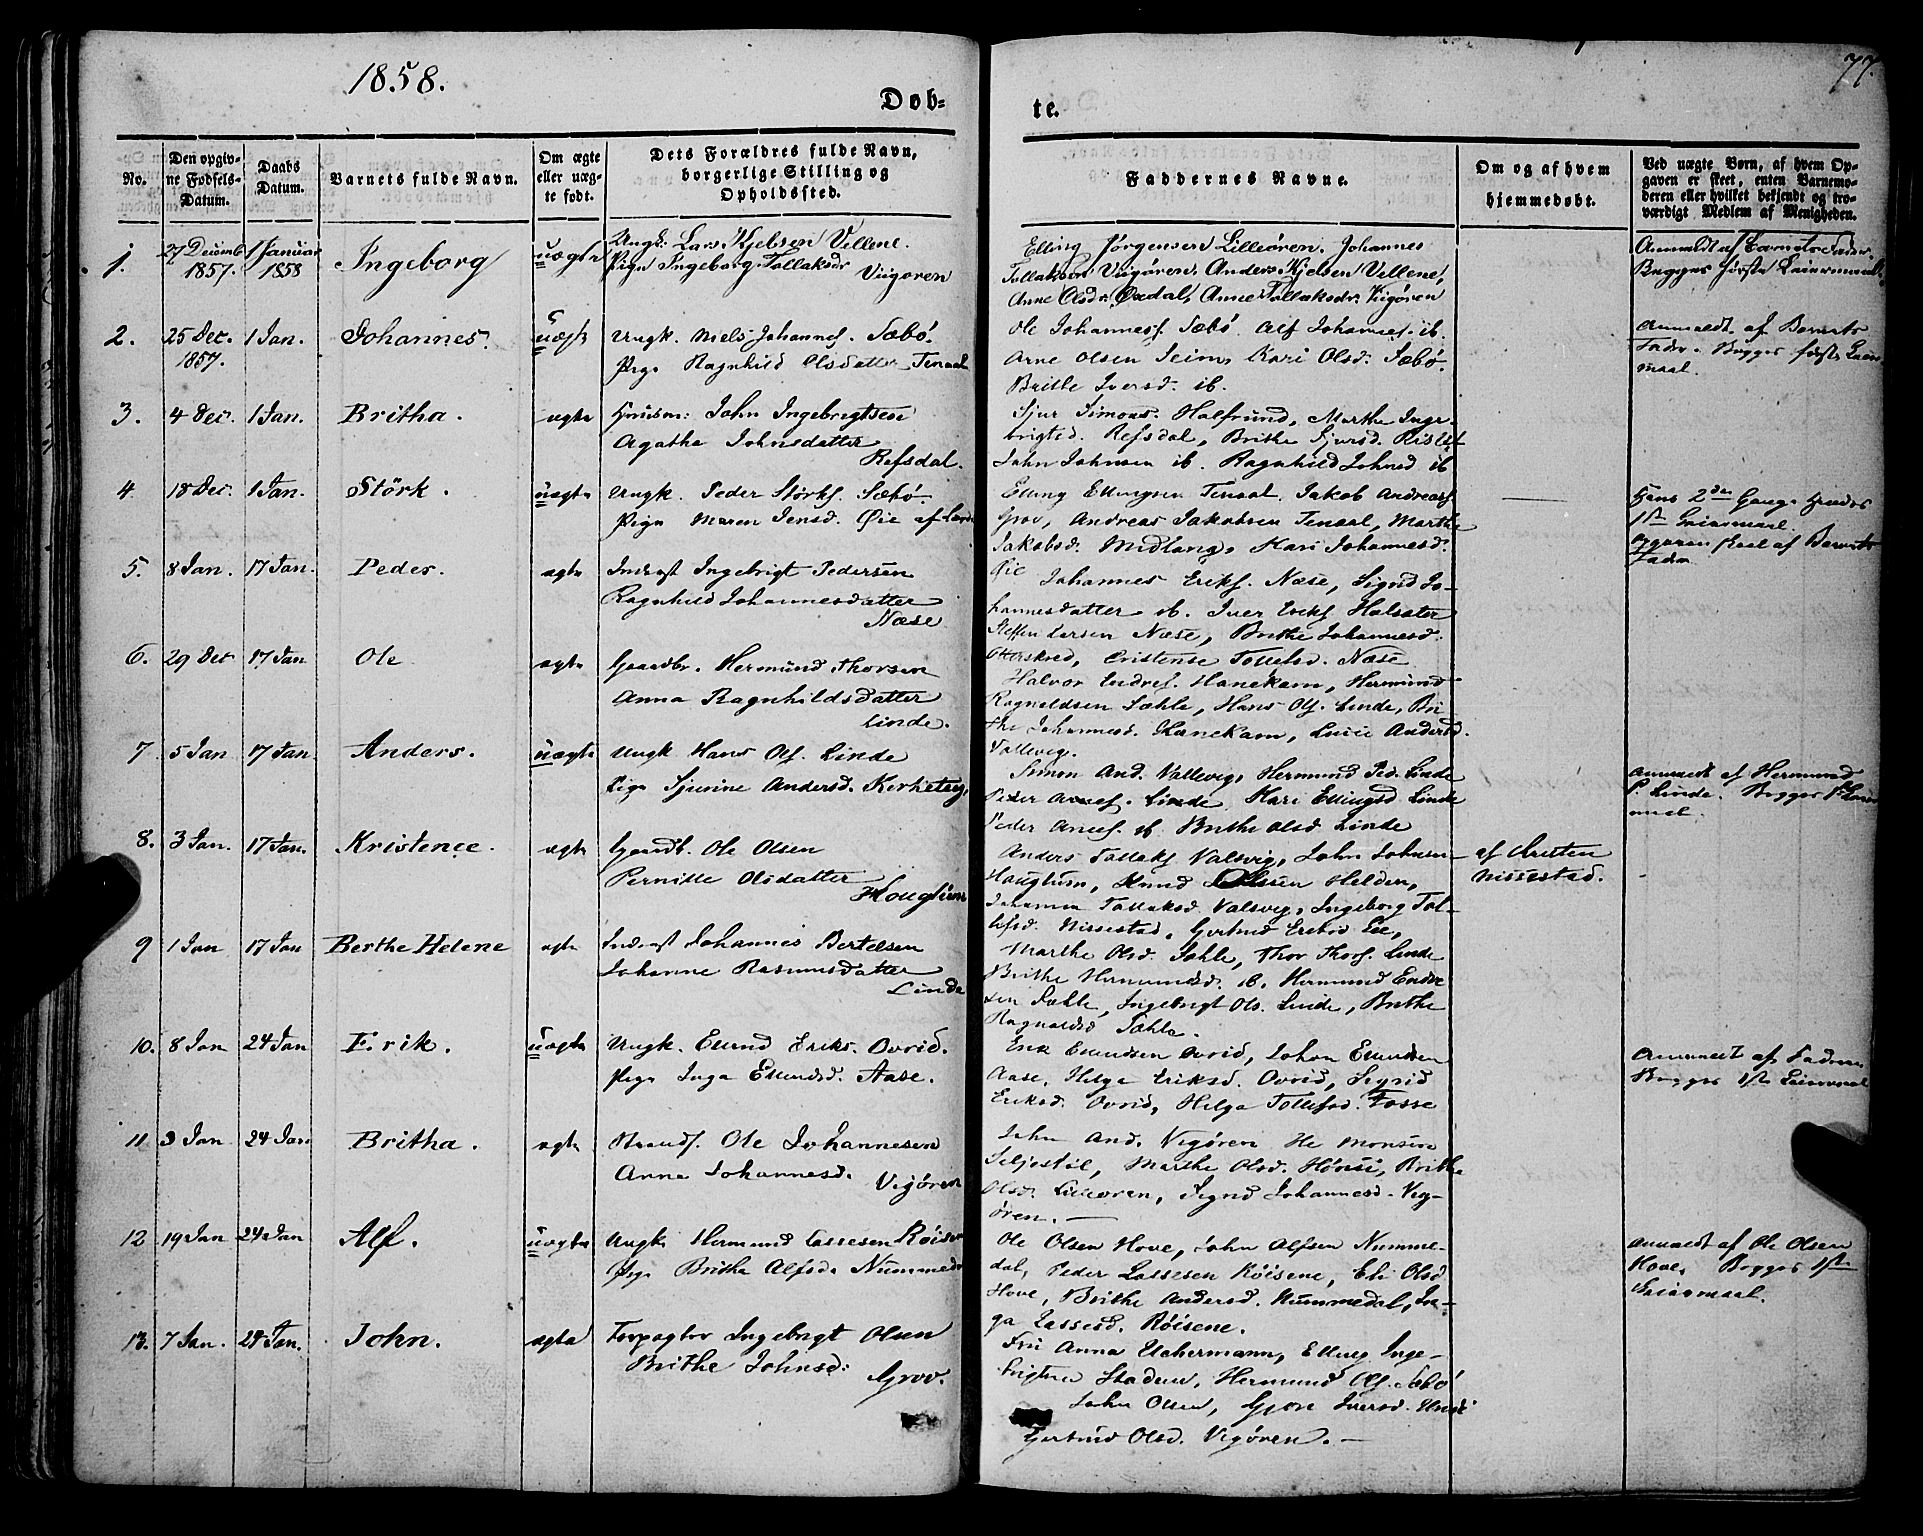 1858.
77.
Døb-
te.
No.
Den opgiv-
ne Fødsels-
Datum.
Daabs
Datum.
Barnets fulde Navn.
Om ægte
eller uæg-
te født.
Dets Forældres fulde Navn,
borgerlige Stilling og
Opholdssted.
Faddernes Navne.
Om og af hvem
hjemmedøbt.
Ved uægte Børn, af hvem Op-
gaven er skeet, enten Barnemo-
deren eller hvilket bekjendt og tro-
værdigt Medlem af Menigheden.
1.
27 Decemb
1857.
1 Januar
1858
Ingeborg
uægte
Ungk: Lars Kjelsen Vellene.
Pige Ingeborg Tollaksdr
Viigøren
Elling Jørgensen Lilleøren. Johannes
Tollaksen Viigøren, Anders Kjelsen Vellene,
Anne Olsdr Øxdal, Anne Tollaksdr Viigøren
Anmeldt af Barnets Fader.
Begges første Leiermaal.
2.
25 Dec.
1857.
1 Jan.
Johannes.
uægte
Ungk. Niels Johannes. Sæbø.
Pige Ragnhild Olsdatter Tenaal
Ole Johannes. Sæbø. Alf Johannes. ib.
Arne Olsen Seim, Kari Olsd. Sæbø.
Brithe Iversd. ib.
Anmeldt af Barnets
Fader. Begges første Leier-
maal.
3.
4 Dec.
1 Jan.
Britha.
ægte
Huusm: John Ingebrigtsen
Agatha Johnsdatter
Refsdal.
Sjur Simons. Halfrund, Marthe Inge-
brigtsd. Refsdal, Brithe Sjursd.
John Johnsen ib. Ragnhild Johnsd ib
4
18 Dec.
1 Jan.
Størk.
uægte
Ungk. Peder Størks. Sæbø.
Pige Maren Jensd. Øie af
Elling Ellingsen Tenaal. Jakob Andreas.
Grov, Andreas Jakobsen Tenaal, Marthe
Jakobsd. Midlang, Kari Johannesd.
Øie
Hans 2den Gang Hendes
1ste Leiermaal.
Opgaven skeet af Barnets
Fader
5.
8 Jan.
17 Jan.
Peder.
ægte
Inderst Ingebrigt Pedersen
Ragnhild Johannesdatter
Næse
Johannes Eriks. Næse, Sigrid Jo-
hannesdatter ib. Iver Eriks. Halsæter
Steffen Larsen Næse, Brithe Johannesd.
Otterskred, Cristense Tollefsd. Næse
6.
29 Dec
17 Jan
Ole
ægte
Gaardbr. Hermund Thorsen
Anna Ragnhildsdatter
Linde.
Halvor Endres. Hanekam, Hermund
Ragnaldsen Sæhle, Hans Ols. Linde, Bri-
the Johannesd. Hanekam, Lucie Andersd.
Vallevig.
7
5 Jan
17 Jan.
Anders.
uægte
Ungk Hans Ols. Linde
Pige Sjurine Andersd. Kirketeig,
Simon And. Vallevig, Hermund Ped. Linde
Peder Arnes. Linde, Kari Ellingsd Linde
Peder Arnes. ib. Brithe Olsd Linde
Anmeldt af Hermund
P. Linde. Begges 1ste Leier-
maal.
8.
3 Jan.
17 Jan.
Kristence.
ægte
Gaardb. Ole Olsen
Pernille Olsdatter
Hougtun
Anders Tollaks Valsvig, John Johnsen
Hougtum, Knud Olsen Helden,
Johanna Tollaksd Valsvig, Ingeborg Tol-
lefsd. Nissestad, Gertrud Eriksd Eie,
af Kristen
Nissestad.
9
1 Jan
17 Jan
Berthe Helene
ægte
Inderst Johannes Bertelsen
Johanne Rasmusdatter
Linde
Marthe Olsd. Sæhle, Thor Thors. Linde
Brithe Hermundsd. ib. Hermund Endre-
sen Sæhle, Ingebrigt Ols. Linde, Brithe
Ragnaldsd Sæhle.
10.
8 Jan
24 Jan
Erik.
uægte
Ungk. Ellend Eriks. Ovrid.
Pige Inga Ellendsd. Aase.
Erik Ellendsen Ovrid, Johan Ellendsen
Aase, Helga Eriksd. Ovrid, Sigrid
Eriksd. Ovrid, Helga Tollefsd. Fosse
Anmeldt af Faderen
Begges 1ste Leiermaal
11
3 Jan
24 Jan
Britha.
ægte
Strands. Ole Johannesen
Anne Johannesd.
Vigøren
John And. Vigøren Ole Monsen
Seljestøl, Marthe Olsd. Hønsi, Brithe
Olsd. Lilleøren, Sigrid Johannesd. Vig-
øren.
12
19 Jan
24 Jan
Alf.
uægte
Ungk Hermund Lassesen Røisene
Pige Britha Alfsd. Nummedal
Ole Olsen Hove, John Alfsen Numme-
dal, Peder Lassesen Røisene, Eli Olsd
Hove, Brithe Andersd. Nummedal, In-
ga Lassesd. Røisene.
Anmeldt af Ole Olsen
Hove. Begges 1ste
Leiermaal.
13.
7 Jan.
24 Jan.
John.
ægte
Forpagter Ingebrigt Olsen
Brithe Johnsd:
Grov.
Fru Anna Uchermann, Elling Inge-
brigtsen Stadem, Hermund Ols. Sæbø
John Olsen, Gjøri Iversd.
Gertrud Olsd. Vigøren.